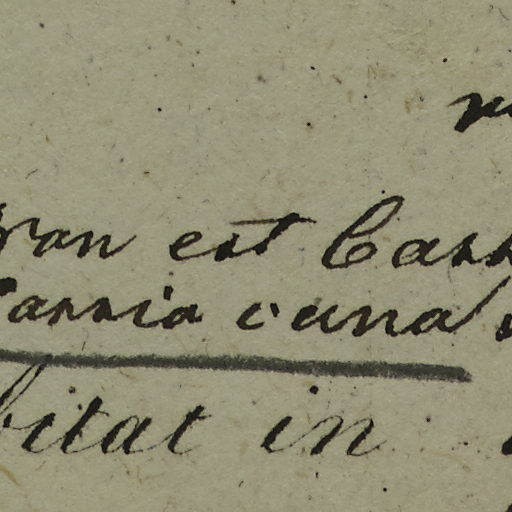 ran est Cass
Cassia cana
bitat in